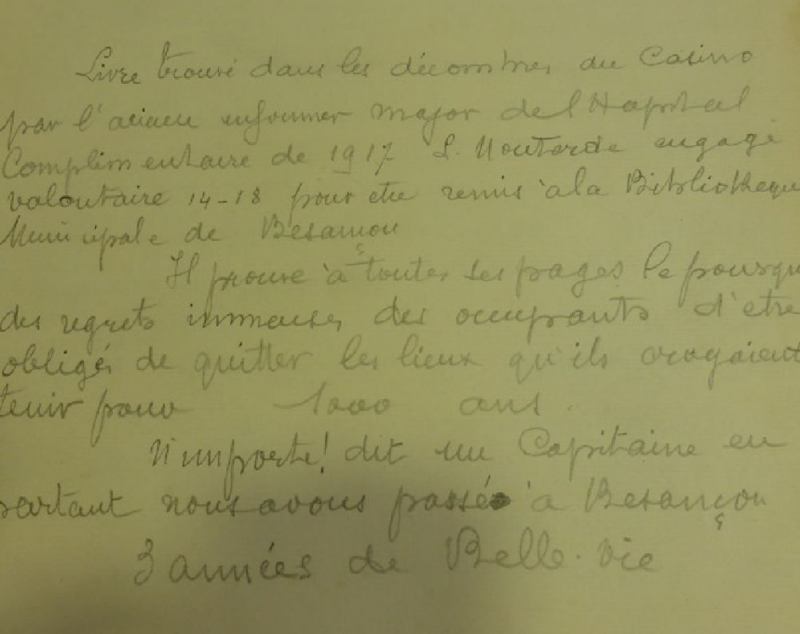 Livre trouvé dans les décombres du Casino
par l'ancien infirmier major del Hopital
Complimentaire de 1917 L. Mouterde engagé
volontaire 14-18 pour etre remis à la Bibliotheque
Municipale de Besançon
Il prouve à toutes ses pages le pourquoi
des regrets immenses des occupants d'etre
obligés de quitter les lieux qu'ils croyaient
tenir pour 1000 ans.
N'importe! dit un Capitaine en
partant nous avons passés à Besançon
3 années de Belle. Vie